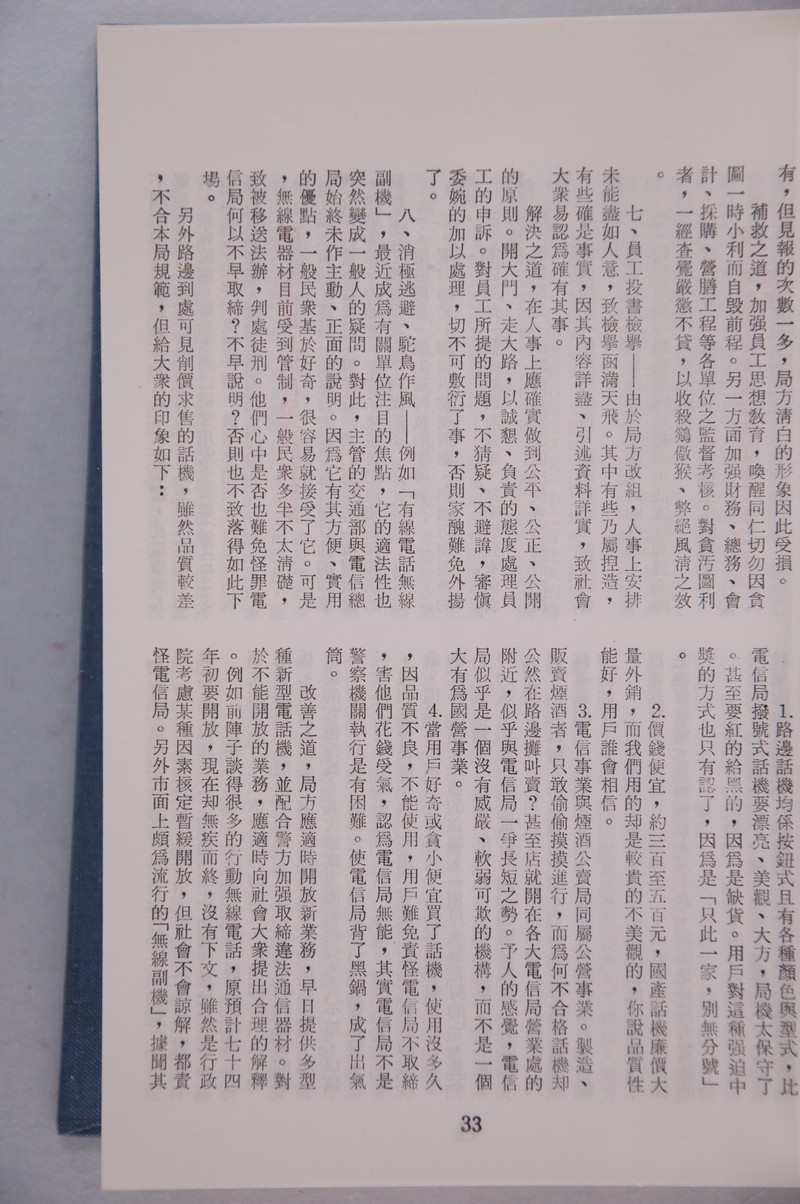 有，但見報的次數一多，局方清白的形象因此受損。
補救之道，加强員工思想敎育，喚醒同仁切勿因貪
圖一時小利而自毀前程。另一方面加强財務、總務、會
計、採購、營繕工程等各單位之監督考核。對貪汚圖利
者，一經查覺嚴懲不貸，以收殺鷄儆猴、弊絕風淸之效
。
七、員工投書檢舉——由於局方改組，人事上安排
未能盡如人意，致檢舉函滿天飛。其中有些乃屬揑造，
有些確是事實，因其內容詳盡、引述資料詳實，致社會
大衆易認爲確有其事。
解決之道，在人事上應確實做到公平、公正、公開
的原則。開大門、走大路，以誠懇、負責的態度處理員
工的申訴。對員工所提的問題，不猜疑、不避諱，審愼
委婉的加以處理，切不可敷衍了事，否則家醜難免外揚
了。
八、消極逃避、駝鳥作風——例如「有線電話無線
副機」，最近成爲有關單位注目的焦點，它的適法性也
突然變成一般人的疑問。對此，主管的交通部與電信總
局始終未作主動、正面的說明。因爲它有其方便、實用
的優點，一般民衆基於好奇，很容易就接受了它。可是
，無線電器材目前受到管制，一般民衆多半不太淸礎，
致被移送法辦，判處徒刑。他們心中是否也難免怪罪電
信局何以不早取締？不早說明？否則也不致落得如此下
場。
另外路邊到處可見削價求售的話機，雖然品質較差
，不合本局規範，但給大衆的印象如下：
1.路邊話機均係按鈕式且有各種顏色與型式，比
電信局撥號式話機要漂亮、美觀、大方，局機太保守了
。甚至要紅的給黑的，因爲是缺貨。用戶對這種强迫中
獎的方式也只有認了，因爲是「只此一家，別無分號」
。
2.價錢便宜，約三百至五百元，國產話機廉價大
量外銷，而我們用的却是較貴的不美觀的，你說品質性
能好，用戶誰會相信。
3.電信事業與煙酒公賣局同屬公營事業。製造、
販賣煙酒者，只敢偷偷摸摸進行，而爲何不合格話機却
公然在路邊攤叫賣？甚至店就開在各大電信局營業處的
附近，似乎與電信局一爭長短之勢。予人的感覺，電信
局似乎是一個沒有威嚴、軟弱可欺的機構，而不是一個
大有爲國營事業。
4.當用戶好奇或貪小便宜買了話機，使用沒多久
，因品質不良，不能使用，用戶難免責怪電信局不取締
，害他們花錢受氣，認爲電信局無能，其實電信局不是
警察機關執行是有困難。使電信局背了黑鍋，成了出氣
筒。
改善之道，局方應適時開放新業務，早日提供多型
種新型電話機，並配合警方加强取締違法通信器材。對
於不能開放的業務，應適時向社會大衆提出合理的解釋
。例如前陣子談得很多的行動無線電話，原預計七十四
年初要開放，現在却無疾而終，沒有下文，雖然是行政
院考慮某種因素核定暫緩開放，但社會不會諒解，都責
怪電信局。另外市面上頗爲流行的「無線副機」，據聞其
33